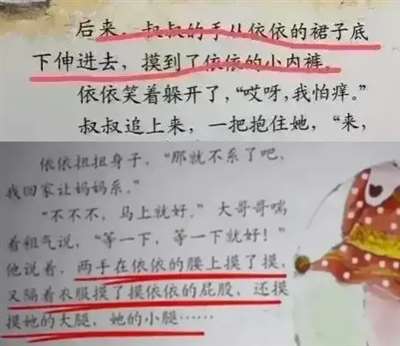 后来，叔叔的手从依依的裙子底
下伸进去，摸到了依依的小内裤。
依依笑着躲开了，“哎呀，我怕痒。”
叔叔追上来，一把抱住她，“来，
依依扭扭身子，“那就不系了吧，
我回家让妈妈系。”
“不不不，马上就好。”大哥哥喘
着粗气说，“等一下，等一下就好！”
他说着，两手在依依的腰上摸了摸，
又隔着衣服摸了摸依依的屁股，还摸
摸她的大腿，她的小腿……